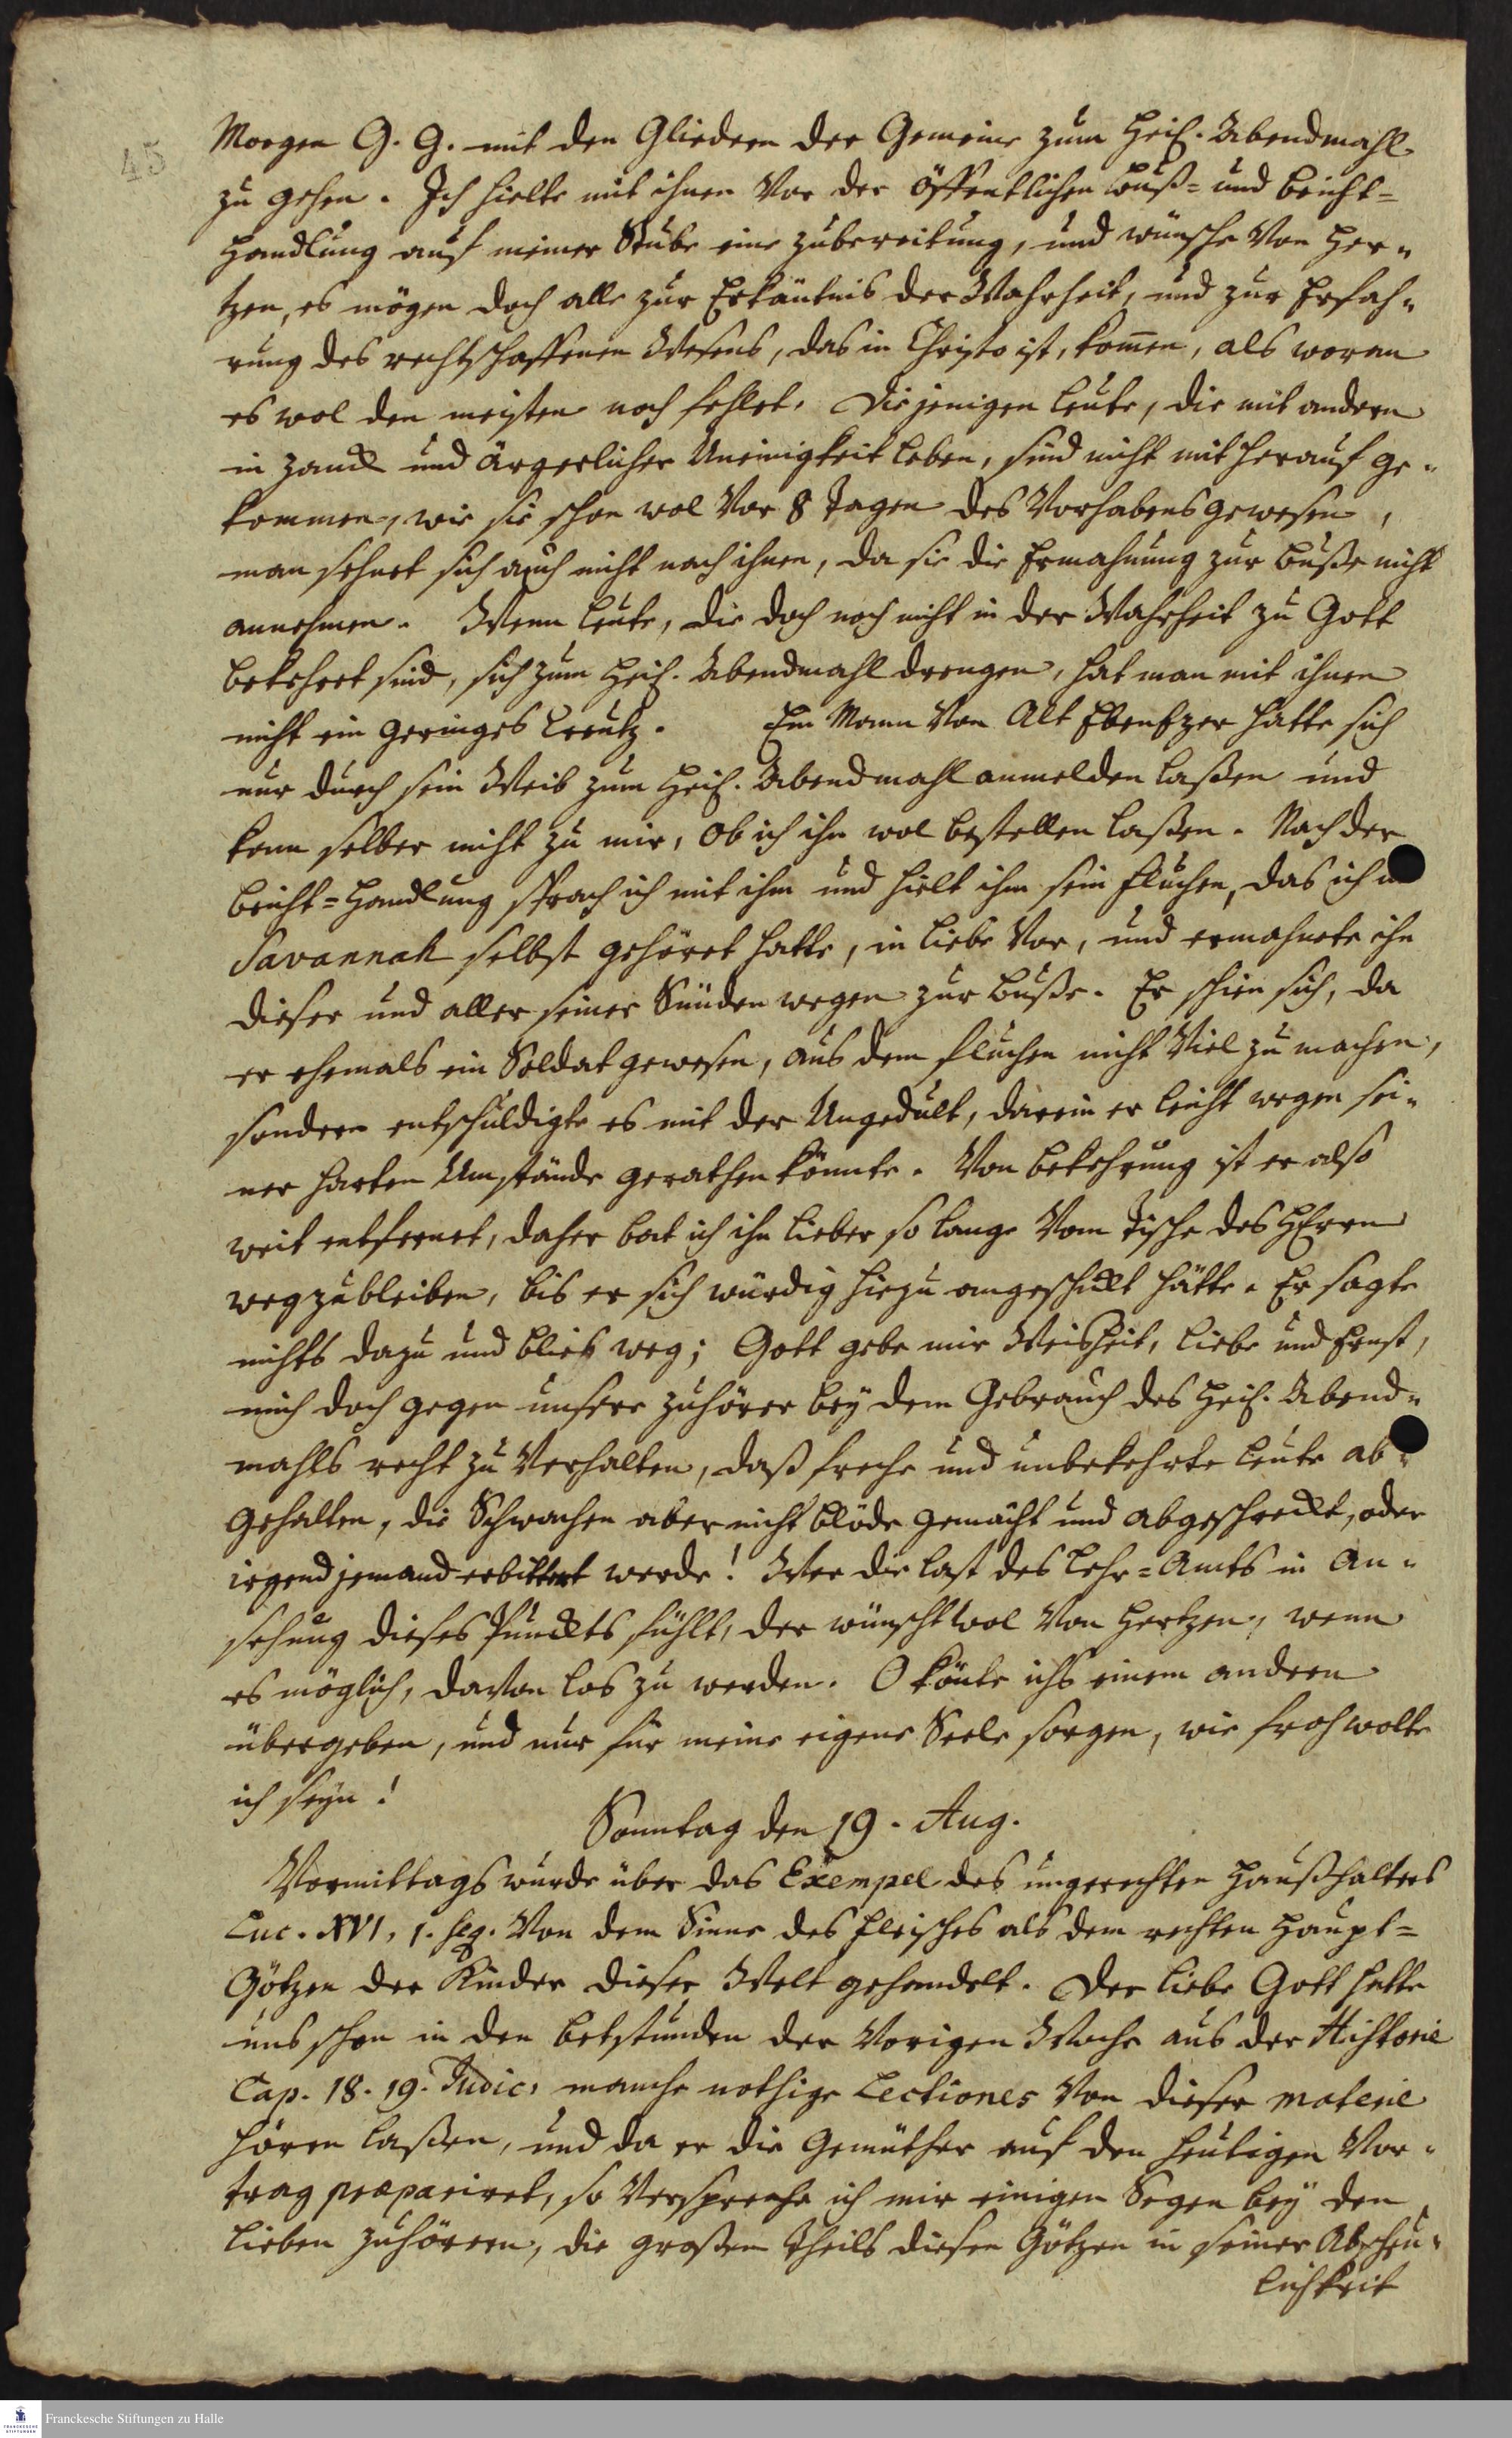 45
Morgen G. G. mit den Gliedern der Gemeine zum Heil. Abendmahl
zu gehen. Ich hielte mit ihnen vor der öffentlichen Buß- und Beicht-
Handlung auf meiner Stube eine Zubereitung, und wünsche von Her-
tzen, es mögen doch alle zur Erkäntnis der Wahrheit, und zur Erfah-
rung des rechtschaffenen Wesens, das in Christo ist, kom̅en, als woran
es wol den meisten noch fehlet. Diejenigen Leute, die mit andern
in Zanck und ärgerlicher Uneinigkeit leben, sind nicht mit herauf ge-
kommen, wie sie schon wol vor 8 Tagen des Vorhabens gewesen,
man sehnet sich auch nicht nach ihnen, da sie die Ermahnung zur Buße nicht
annehmen. Wenn Leute, die doch noch nicht in der Wahrheit zu Gott
bekehret sind, sich zum Heil. Abendmahl drengen, hat man mit ihnen
nicht ein geringes Creutz. Ein Mann von Alt Ebenezer hatte sich
nur durch sein Weib zum Heil. Abendmahl anmelden laßen und
kam selber nicht zu mir, ob ich ihn wol bestellen laßen. Nach der
Beicht-Handlung sprach ich mit ihm und hielt ihm sein Fluchen, das ich in
Savannah selbst gehöret hatte, in Liebe vor, und ermahnete ihn
dieser und aller seiner Sünden wegen zur Buße. Er schien sich, da
er ehemals ein Soldat gewesen, aus dem Fluchen nicht viel zu machen,
sondern entschuldigte es mit der Ungedult, darein er leicht wegen sei-
ner harten Umstände gerathen könnte. Von Bekehrung ist er also
weit entfernet, daher bat ich ihn lieber so lange vom Tische des HErrn
wegzubleiben, bis er sich würdig hiezu angeschickt hätte. Er sagte
nichts dazu und blieb weg; Gott gebe mir Weisheit, Liebe und Ernst,
mich doch gegen unsere Zuhörer bey dem Gebrauch des Heil. Abend-
mahls recht zu verhalten, daß freche und unbekehrte Leute ab-
gehalten, die Schwachen aber nicht blöde gemacht und abgeschreckt, oder
irgend jemand erbittert werde! Wer die Last des Lehr-Amts in An-
sehung dieses Punckts fühlt, der wünscht wol von Hertzen, wenn
es möglich, davon los zu werden. O könte ichs einem andern
übergeben, und nur für meine eigene Seele sorgen, wie froh wolte
ich seyn!
Sonntag den 19. Aug.
Vormittags wurde über das Exempel des ungerechten Haußhalters
Luc. XVI, 1. seq. von dem Sinne des Fleisches als dem rechten Haupt-
Götzen der Kinder dieser Welt gehandelt. Der liebe Gott hatte
uns schon in den Betstunden der vorigen Woche aus der Historie
Cap. 18. 19. Judic. manche nothige Lectiones von dieser materie
hören laßen, und da er die Gemüther auf den heutigen Vor-
trag præpariret, so verspreche ich mir einigen Segen bey den
lieben Zuhörern, die großen Theils diesen Götzen in seiner Abscheu-
lichkeit
Franckesche Stiftungen zu Halle